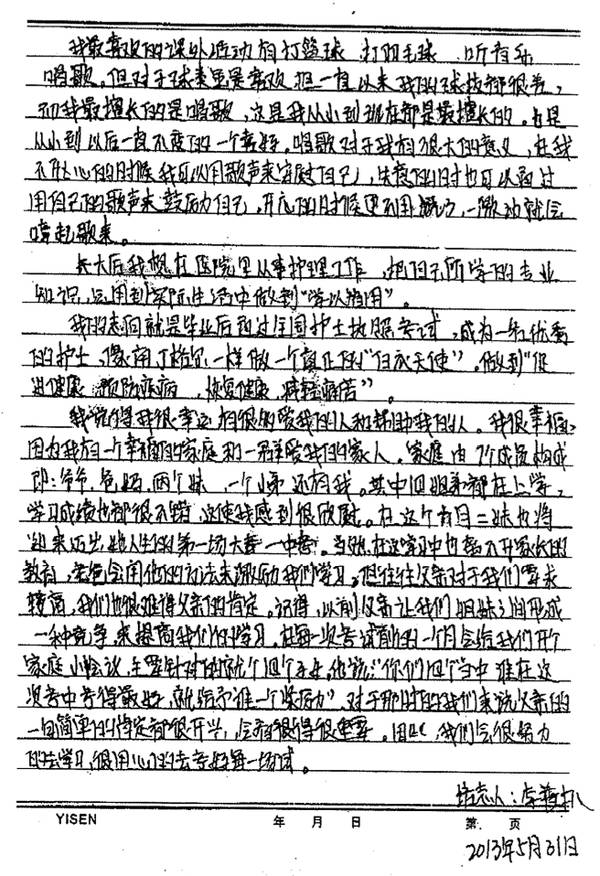 我最喜欢的课外活动有打篮球 打羽毛球 听音乐
唱歌。但对于球类更是喜欢 但一直以来我的球技都很差，
而我最擅长的是唱歌，这是我从小到现在都是最擅长的。也是
从小到以后一直不变的一个喜好。唱歌对于我有很大的意义，在我
不开心的时候我可以用歌声来安慰自己，失意的时也可以通过
用自己的歌声来鼓励自己，开心的时候更不用说了，一激动就会
唱起歌来。
长大后我想在医院里从事护理工作，把自己所学的专业
知识，运用到实际生活中做到“学以致用”。
我的志向就是毕业后通过全国护士执照考试，成为一名优秀
的护士，像南丁格尔一样做一个真正的“白衣天使”，做到“促
进健康 预防疾病，恢复健康，减轻痛苦”。
我觉得我很幸运 有很多爱我的人和帮助我的人。我很幸福，
因为我有一个幸福的家庭和一群爱我的家人。家庭由7个成员构成
即：爷爷、爸妈、两个妹 一个小弟 还有我。其中四姐弟都在上学，
学习成绩也都很不错，这使我感到很欣慰。在这个六月二妹也将
迎来迈出她人生的第一场大赛—中考。当然，在这学习中也离不开家长的
教育，爸爸会用他的方法来激励我们学习。但往往父亲对于我们要求
较高，我们也很难得父亲的肯定。记得，以前父亲让我们姐妹之间形成
一种竞争，来提高我们的学习。在每一次考试前的一个月会给我们开个
家庭小会议，主要针对的就个四个子女，他说：“你们四个当中 谁在这
次考中考得最好，就给予谁一个奖励” 对于那时的我们来说父亲的
一句简单的肯定都很开兴，会看很得很重要。因此，我们会很努力
的去学习，很用心的去考好每一场试。
YISEN 年 月 日 第 页
2013年5月31日